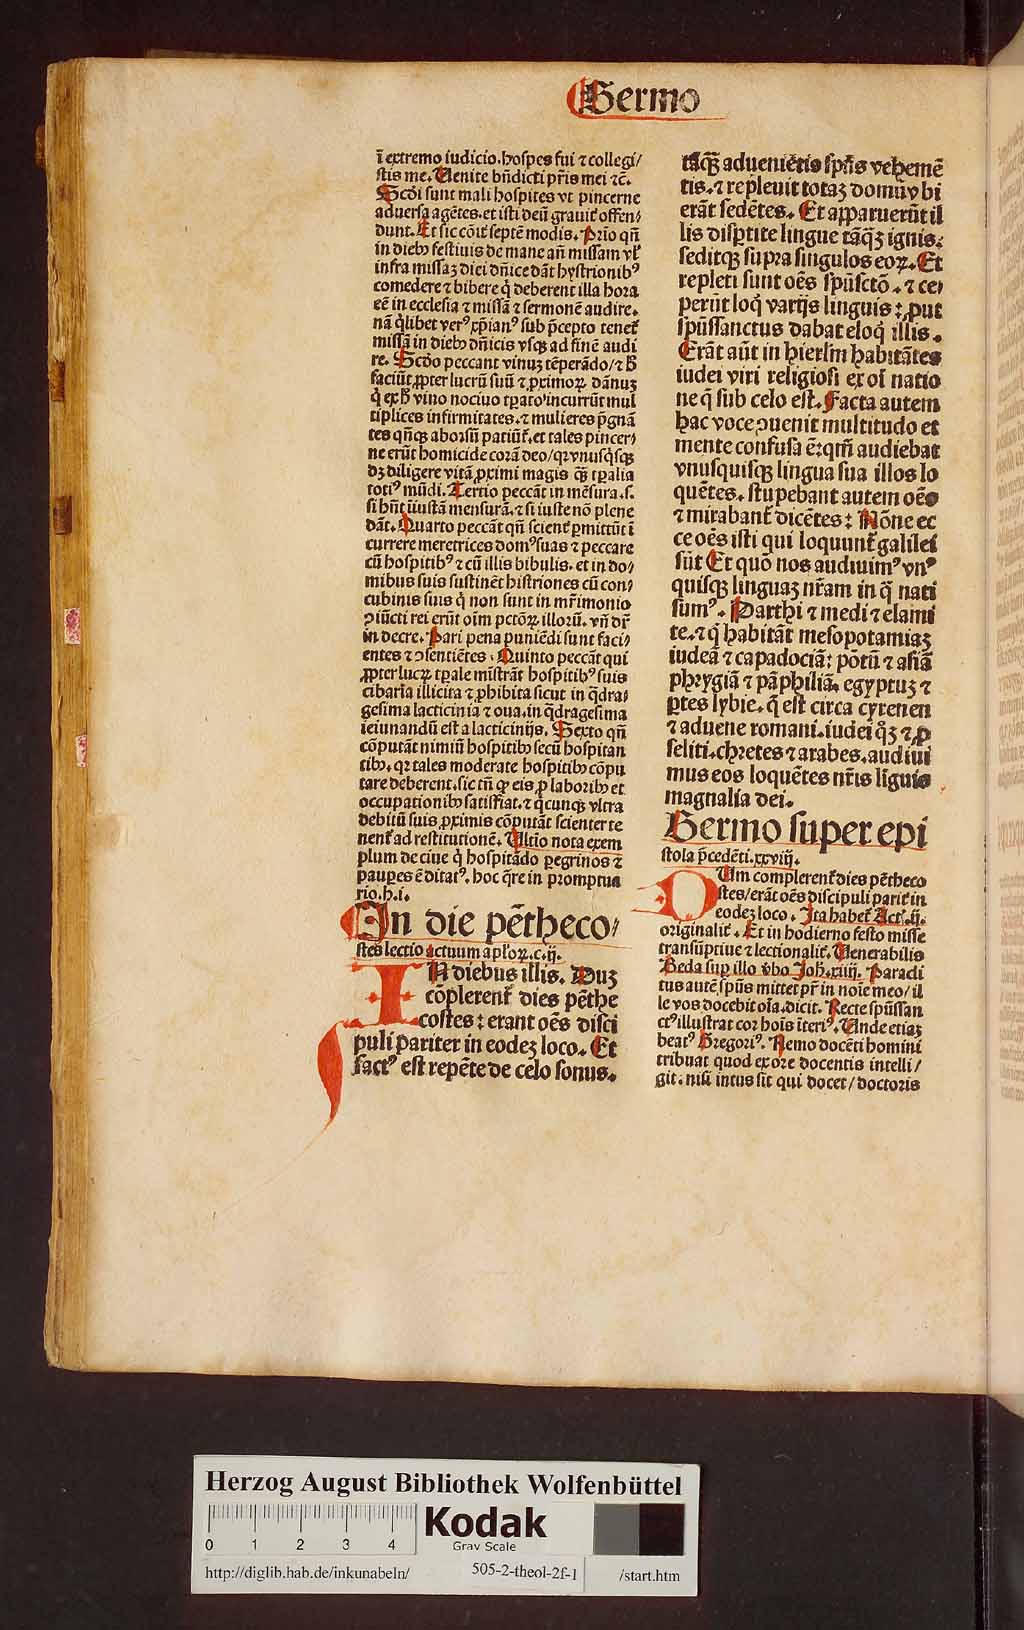 Sermo
ī extremo iudicio. hospes fui ⁊ collegi/
stis me. Uenite bn̄dicti p̄ris mei ⁊c̄.
Scd̄i sunt mali hospites vt pincerne
aduersa agētes. et isti deū grauit̄ offen/
dunt. Et sic cōit̄ septē modis. Prīo qn̄
in dieb⁹ festiuis de mane an̄ missam vl̓
infra missaꝫ diei dn̄ice dāt hystrionib⁹
comedere ⁊ bibere q̇ deberent illa hora
eē in ecclesia ⁊ missā ⁊ sermonē audire.
nā q̇libet ver⁹ xp̄ian⁹ sub p̄cepto tenet̄
missā in dieb⁹ dn̄icis vsqꝫ ad finē audi
re. Scd̄o peccant vinuꝫ tēperādo/⁊ h̄
faciūt ꝓpter lucrū suū ⁊ ꝓximoꝝ dānuꝫ
q̇ ex h̄ vino nociuo tꝑato incurrūt mul
tiplices infirmitates. ⁊ mulieres p̄gnā
tes qn̄qꝫ aborsū patiūt̄. et tales pincer/
ne erūt homicide corā deo/qꝛ vnusq̇sqꝫ
dꝫ diligere vitā ꝓximi magis q̄ꝫ tꝑalia
toti⁹ mūdi. Tertio peccāt in mēsura. s.
si hn̄t iustā mensurā. ⁊ si iuste nō plene
dāt. Quarto peccāt qn̄ scient̄ ꝑmittūt ī
currere meretrices dom⁹ suas ⁊ peccare
cū hospitib⁹ ⁊ cū illis bibulis. et in do/
mibus suis sustinēt histriones cū con/
cubinis suis q̇ non sunt in mr̄imonio
ꝯiūcti rei erūt oīm pctōꝝ illorū. vn̄ dr̄
in decre. Pari pena puniēdi sunt faci/
entes ⁊ ꝯsentiētes. Quinto peccāt qui
ꝓpter lucꝝ tꝑale mīstrāt hospitib⁹ suis
cibaria illicita ⁊ ꝓhibita sicut in q̄dra/
gesima lacticinia ⁊ oua. in q̄dragesima
ieiunandū est a lacticinijs. Sexto qn̄
cōputāt nimiū hospitib⁹ secū hospitan
tib⁹. qꝛ tales moderate hospitib⁹ cōpu
tare deberent. sic tn̄ ꝙ eis ꝓ laborib⁹ et
occupationib⁹ satisfiat. ⁊ q̄cunqꝫ vltra
debitū suis ꝓximis cōputāt scienter te
nent̄ ad restitutionē. Ultīo nota exem
plum de ciue q̇ hospitādo peregrinos ⁊
pauꝑes ē ditat⁹. hoc q̄re in promptua
rio. h. i.
In die pētheco/
stes lectio actuum apl̓oꝝ. c. ij.
IN diebus illis. Duꝫ
cōplerent̄ dies pēthe
costes: erant oēs disci
puli pariter in eodeꝫ loco. Et
fact⁹ est repēte de celo sonus.
tāq̄ꝫ aduenīetis sp̄ūs vehemē
tis. ⁊ repleuit totaꝫ domuꝫ vbi
erāt sedētes. Et apparuerūt il
lis disꝑtite lingue tāqꝫ ignis.
seditqꝫ supra singulos eoꝝ. Et
repleti sunt oēs spū sctō. ⁊ ce/
perūt loq̇ varijs linguis: ꝓut
spūssanctus dabat eloq̇ illis.
Erāt aūt in hierlm̄ habitātes
iudei viri religiosi ex oī natio
ne q̄ sub celo est. Facta autem
hac voce ꝯuenit multitudo et
mente confusa ē: qm̄ audiebat
vnusquisqꝫ lingua sua illos lo
quētes. stupebant autem oēs
⁊ mirabant̄ dicētes: Nōne ec
ce oēs isti qui loquunt̄ galilei
sūt Et quō nos audiuim⁹ vn⁹
quisqꝫ linguaꝫ nr̄am in q̄ nati
sum⁹. Parthi ⁊ medi ⁊ elami
te. ⁊ q̇ habitāt mesopotamiaꝫ
iudeā ⁊ capadociā: pōtū ⁊ asiā
phrygiā ⁊ pāphiliā. egyptuꝫ ⁊
ꝑtes lybie. q̄ est circa cyrenen
⁊ aduene romani. iudei q̊ꝫ ⁊ ꝓ
seliti. chretes ⁊ arabes. audiui
mus eos loquētes nr̄is līguis
magnalia dei.
Sermo super epi
stola p̄cedēti. xxviij.
DUm complerent̄ dies pētheco
stes/erāt oēs discipuli parit̄ in
eodeꝫ loco. Ita habet̄ Act̄. ij.
originalit̄. Et in hodierno festo misse
transūptiue ⁊ lectionalit̄. Uenerabilis
Beda suꝑ illo v̄bo Joh̄. xiiij. Paracli
tus autē spūs mittet pr̄ in noīe meo/ il
le vos docebit oīa. dicit. Recte spūssan
ct⁹ illustrat cor hoīs īteri⁹. Unde etiaꝫ
beat⁹ Gregori⁹. Nemo docēti homini
tribuat quod ex ore docentis intelli/
git. nisi intus sit qui docet/ doctoris
Herzog August Bibliothek Wolfenbüttel
0 1 2 3 4
Kodak
Gray Scale
http://diglib.hab.de/inkunabeln/ 505-2-theol-2f-1 /start.htm